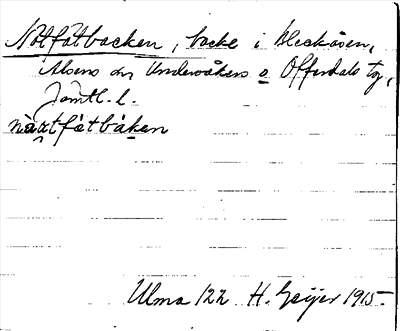 Nötfåtbacken, backe i Bleckåsen,
Alsens o Undersåkers o Offerdals tg,
Jämtl. l.
nàztfåtbàken
Ulma 122 H. Geijer 1915.